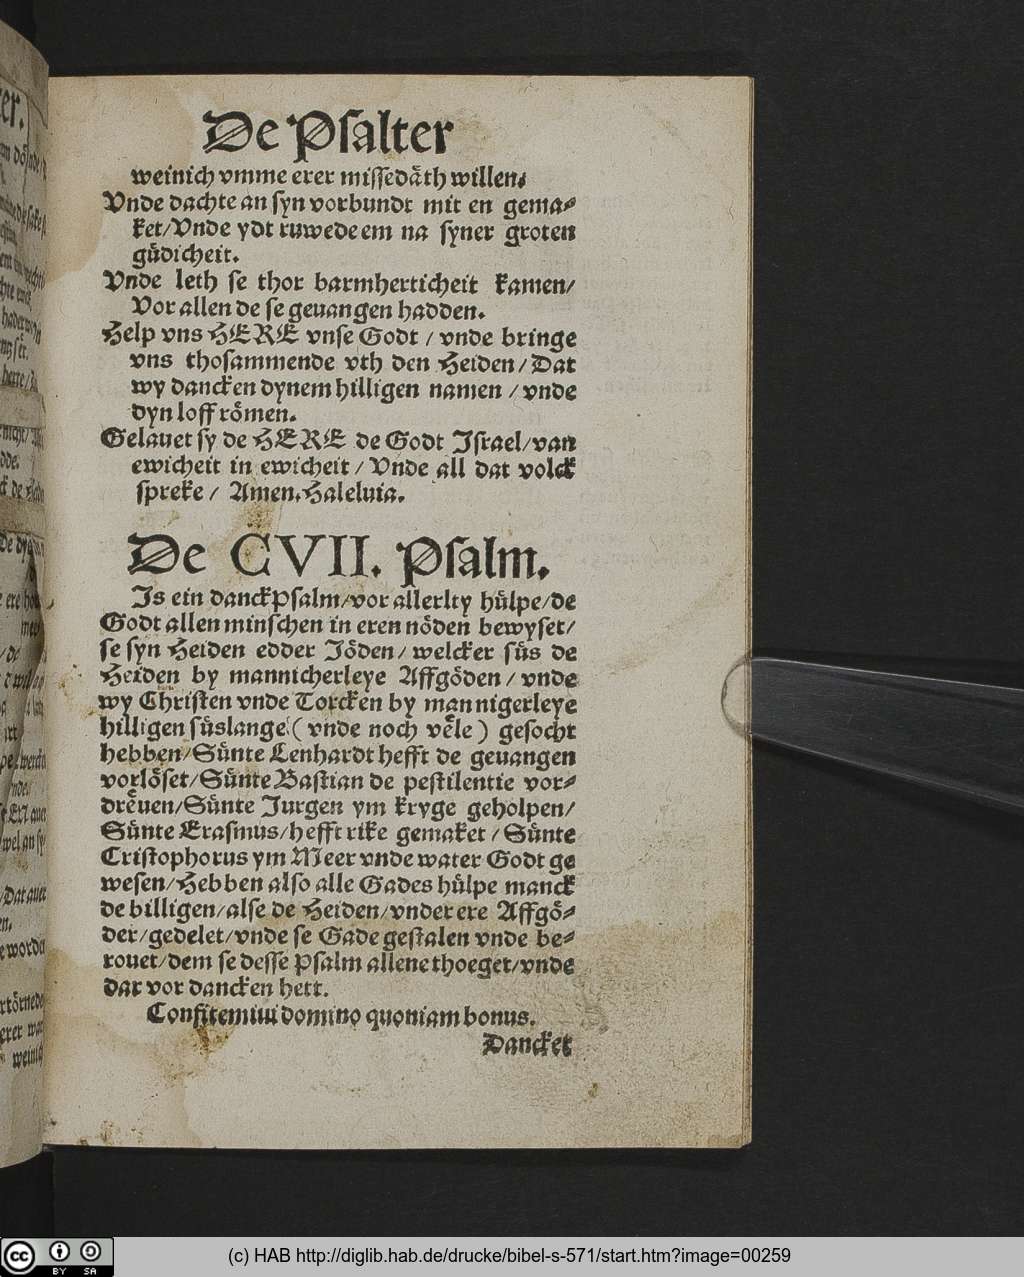 De Psalter
weinich vmme erer missedäth willen.
Vnde dachte an syn vorbundt mit en gema⸗
ket/Vnde ydt ruwede em na syner groten
güdicheit.
Vnde leth se thor barmherticheit kamen/
Vor allen de se geuangen hadden.
Help vns HERE vnse Godt / vnde bringe
vns thosammende vth den Heiden/Dat
wy dancken dynem hilligen namen / vnde
dyn loff römen.
Gelauet sy de HERE de Godt Israel/van
ewicheit in ewicheit / Vnde all dat volck
spreke / Amen. Haleluia.
De CVII. Psalm.
Is ein danckPsalm/vor allerley hülpe/de
Godt allen minschen in eren nöden bewyset/
se syn Heiden edder Jöden/ welcker süs de
Heiden by mannicherleye Affgöden / vnde
wy Christen vnde Torcken by mannigerleye
hilligen süslange ( vnde noch vele ) gesocht
hebben/Sünte Lenhardt hefft de geuangen
vorlöset/Sünte Bastian de pestilentie vor⸗
dreuen/Sünte Jurgen ym kryge geholpen/
Sünte Erasmus/hefft rike gemaket / Sünte
Cristophorus ym Meer vnde water Godt ge
wesen/Hebben also alle Gades hülpe manck
de billigen/alse de Heiden/vnder ere Affgö⸗
der/gedelet/vnde se Gade gestalen vnde be⸗
rouet/dem se desse Psalm allene thoeget/vnde
dar vor dancken hett.
Confitemini domino quoniam bonus.
Dancket
weinich
(c) HAB http://diglib.hab.de/drucke/bibel-s-571/start.htm?image=00259
cc BY SA